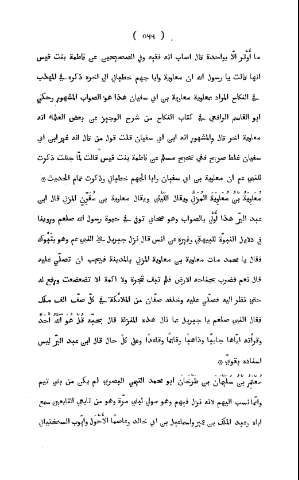 ( ٥٦٦ )
ما أوتر الا بواحدة قال اصاب انه فقيه وفى الصحيحين عن فاطمة بنت قيس
انها قالت يا رسول الله ان معاوية وابا جهم خطبانى الى اخره ذكره فى المهذب
فى النكاح المراد معاوية معاوية بن ابى سفيان هذا هو الصواب المشهور وحكى
ابو القاسم الرافعى فى كتاب النكاح من شرح الوجيز عن بعض العلماء انه
معاوية اخر قال والمشهور انه ابن ابى سفيان قلت قول من قال انه غير ابن ابى
سفيان غلط صريح ففى صحيح مسلم عن فاطمة بنت قيس قالت لما حللت ذكرت
للنبى عم ان معاوية بن ابى سفيان وابا الجهم خطبانى وذكرت تمام الحديث *
مُعاوية بن مُعاوية المُزَنى ويقال اللَيْثى ويقال معاوية بن مُقَرِّن المزنى قال ابن
عبد البرّ هذا أَوْلَى بالصواب وهو صحابى توفى فى حيوة رسول الله صلعم وروينا
فى دلايل النبوة للبيهقى وغيره عن انس قال نزل جبريل على النبى عم وهو بتبوك
فقال يا محمد مات معاوية بن معاوية المزنى بالمدينة فيجب ان تصلّى عليه
قال نعم فضرب بجناحه الارض فلم تبق شجرة ولا اكمة الا تضعضعت ورفع له
حتى نظر اليه فصلّى عليه وخلفه صفّان من الملائكة فى كلّ صفّ الف ملك
فقال النبى صلعم يا جبريل بما نال هذه المنزلة قال بحبّه قُلْ هُوَ ٱللَّهُ أَحَدٌ
وقرآءته ايّاها جاىيا وذاهبا وقائما وقاعدا وعلى كل حال قال ابن عبد البرّ ليس
اسناده بقوىّ *
مُعتَمِر بن سُلَيْمان بن طَرْخان ابو محمد التيمى البصرى لم يكن من بنى تيم
وانّما نسب اليهم لانه نزل فيهم وهو مولى لبنى مرّة وهو من تابعى التابعين سمع
اباه وعبد الملك بن عمير واسماعيل بن ابى خالد وعاصما الأحْوَل وايّوب السختيانى